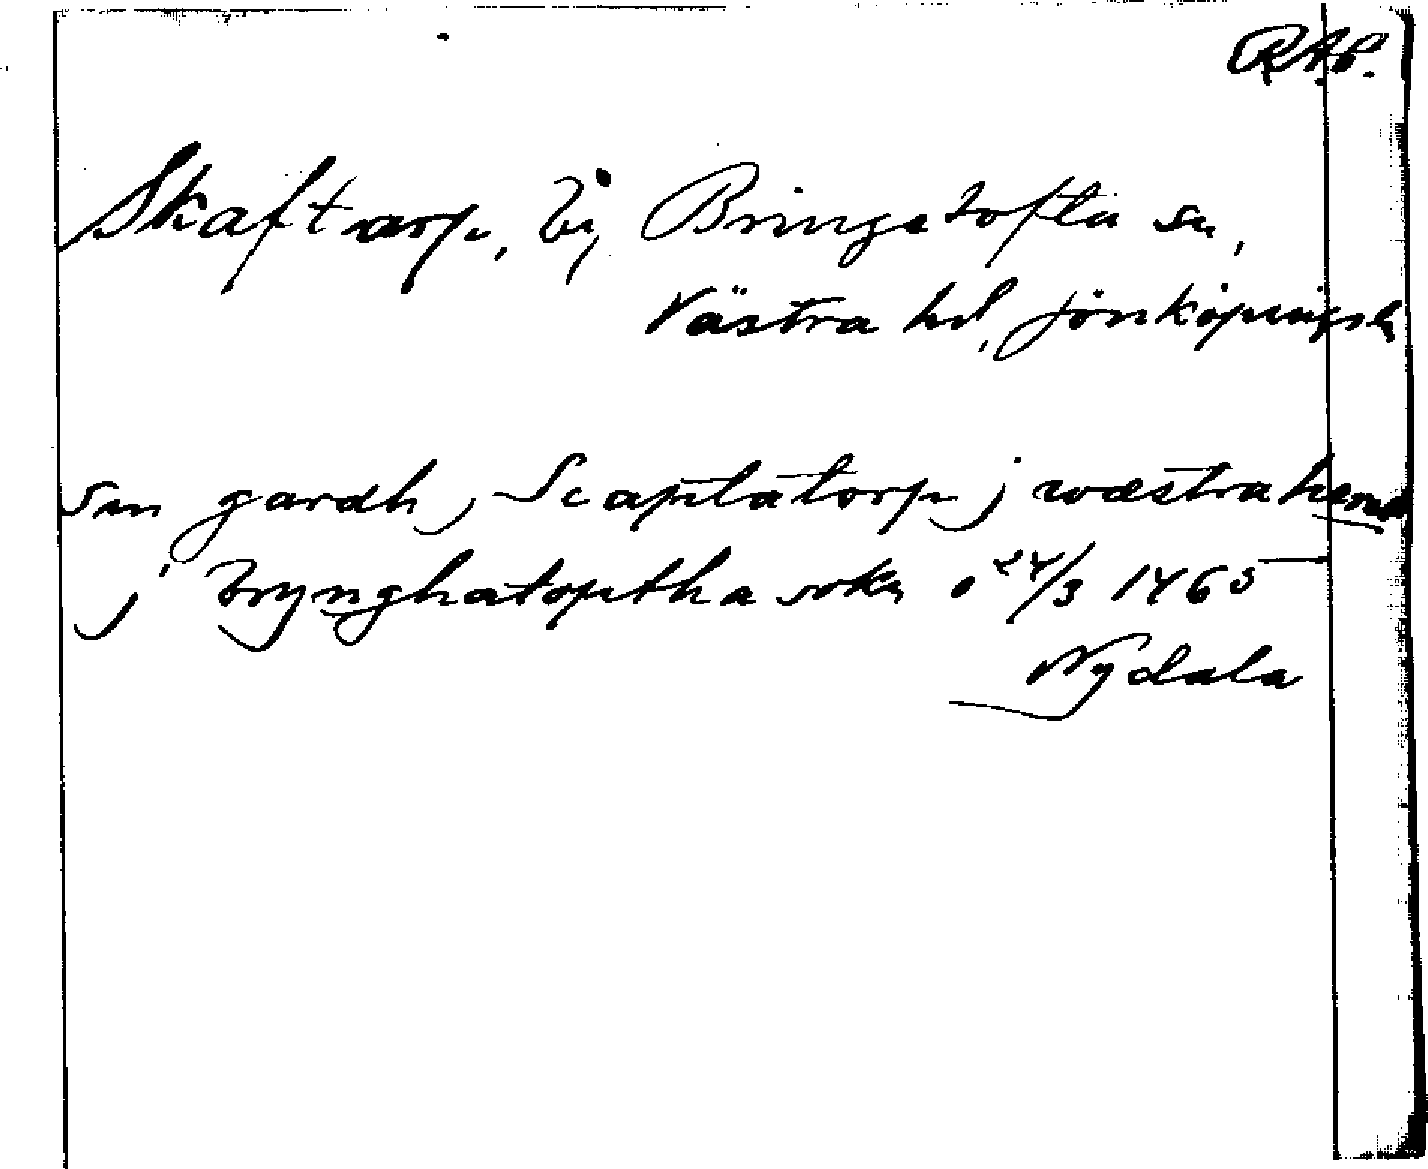 RAP.
Skaftarp, by, Bringetofta sn,
Västra hd, Jönköpings l.
sin gardh j Scaptatorp j wæstra hærad
j brynghatoptha sokn o 24/3 1465
Nydala